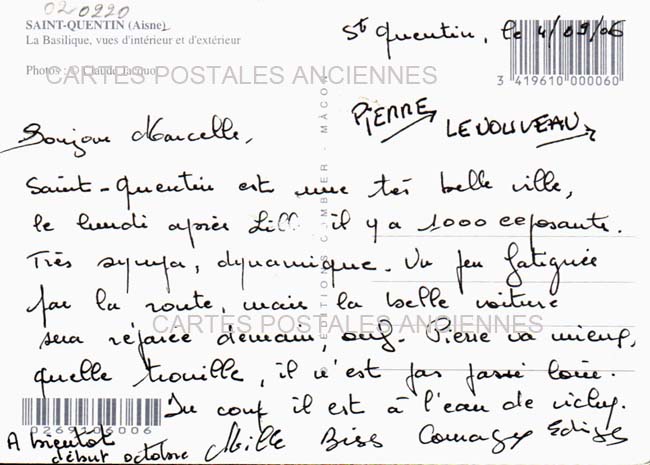 020220
SAINT-QUENTIN (Aisne)
La Basilique, vues d'intérieur et d'extérieur
Photos : © Claude Jacquot
St Quentin, le 4/09/06
3 419610 000060
CARTES POSTALES ANCIENNES
PIERRE
LE NOUVEAU
Bonjour Marcelle,
Saint-Quentin est une très belle ville,
le lundi après Lille il y a 1000 exposants.
Très sympa, dynamique. Un peu fatiguée
par la route, mais la belle voiture
CARTES POSTALES ANCIENNES
sera réparée demain, ouf. Pierre va mieux,
quelle trouille, il n'est pas passé loin.
Du coup il est à l'eau de vichy.
0269206006
A bientôt
début octobre Mille Biss
EDITIONS COMBIER - MÂCON